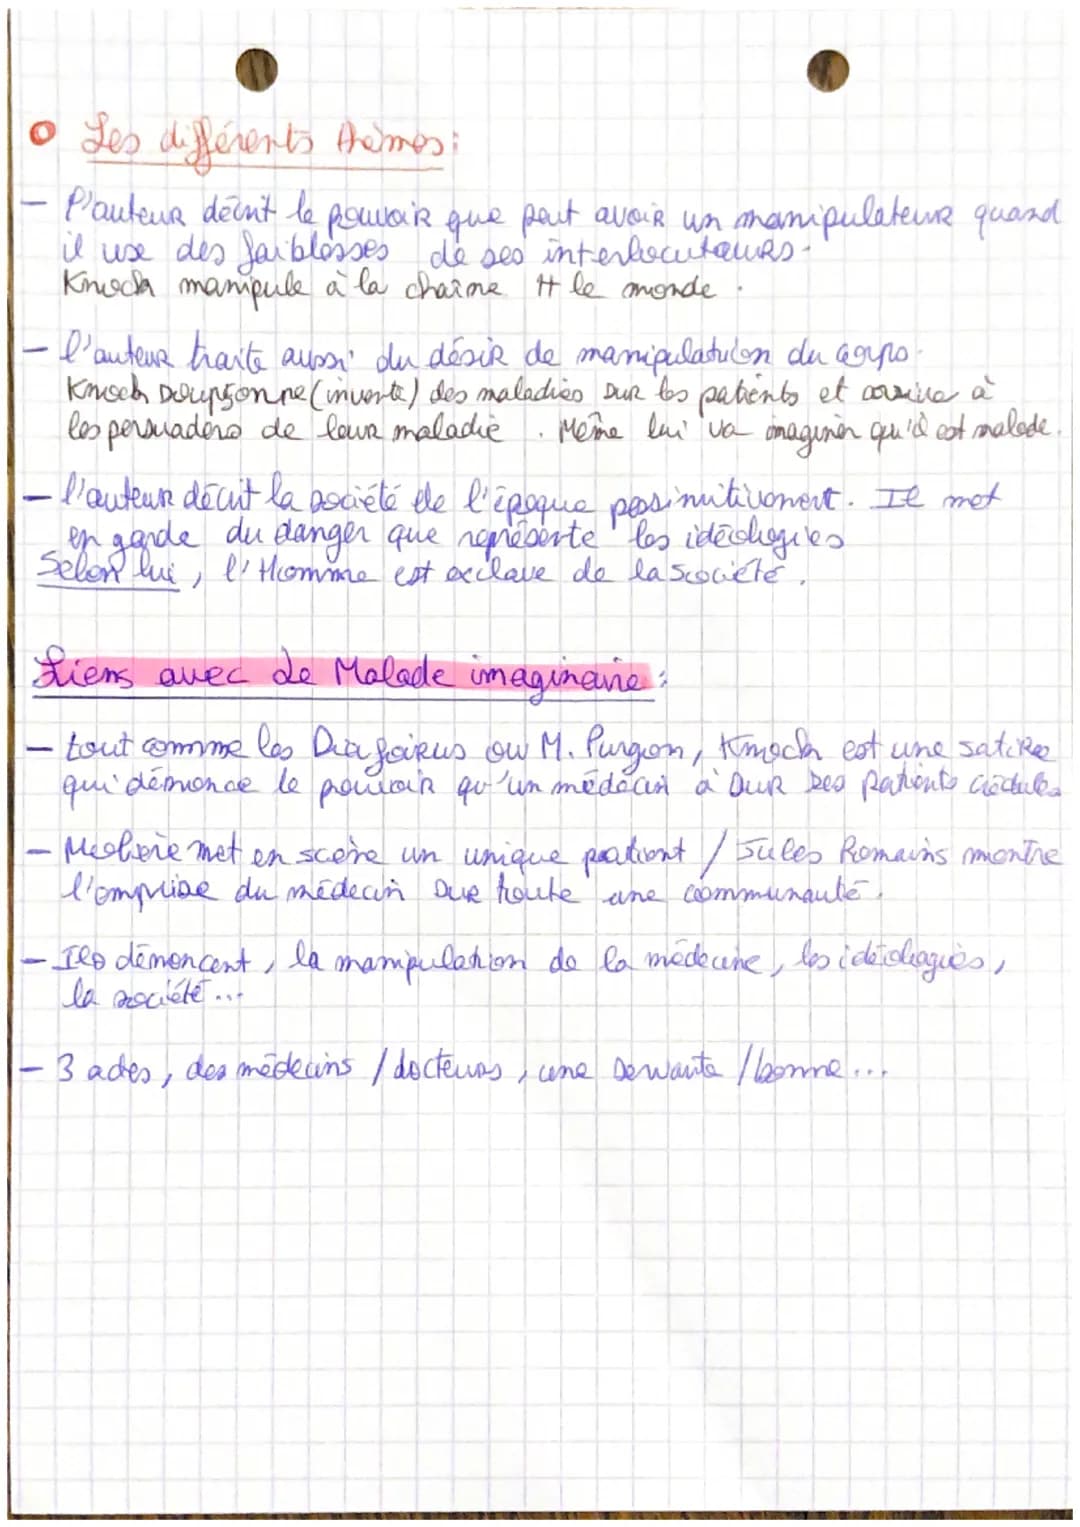 Les différents thèmes :
- l'auteur décrit le pouvoir que peut avoir un manipulateur quand
il use des faiblesses de ses interlocuteurs.
Knock manipule à la chaîne tt le monde.
- l'auteur traite aussi du désir de manipulation du corps.
Knock soupçonne (invente) des maladies sur les patients et arrive à
les persuaders de leur maladie. Même lui va imaginer qu'il est malade.
- l'auteur décrit la société de l'époque pessimitivement. Il met
en garde du danger que représente les idéologies
Selon lui, l'Homme est esclave de la société.
Liens avec Le Malade imaginaire :
- tout comme les Diafoirus ou M. Purgon, Knock est une satire
qui dénonce le pouvoir qu'un médecin à sur ses patients crédules
- Molière met en scène un unique patient / Jules Romains montre
l'emprise du médecin sur toute une communauté.
- Ils dénoncent, la manipulation de la médecine, les idéologies,
la société...
- 3 actes, des médecins / docteurs, une servante / bonne...